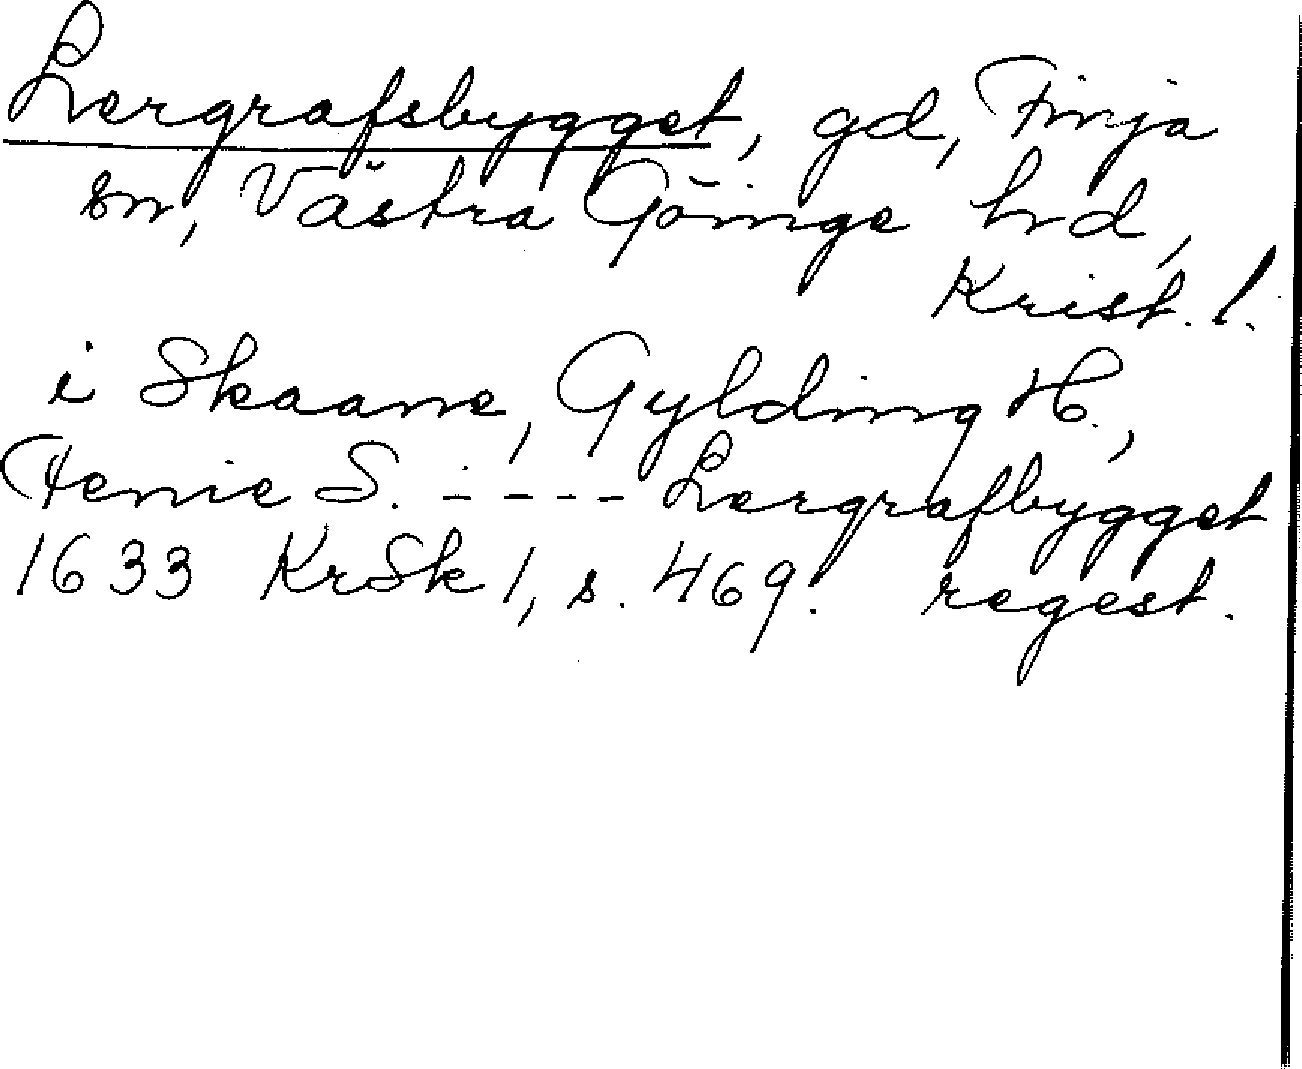 Lergrafsbygget, gd, Finja
sn, Västra Göinge hd,
Krist. l.
i Skaane, Gylding H.,
Fenie S. - - - - Lergrafbygget
1633 KrSk 1, s. 469. regest.